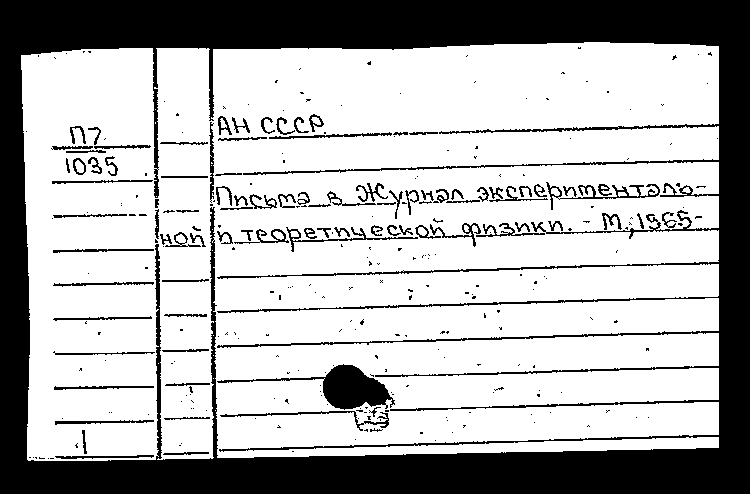 П7
1035
АН СССР
Письма в Журнал эксперименталь-
ной и теоретической физики. - М., 1965-
1